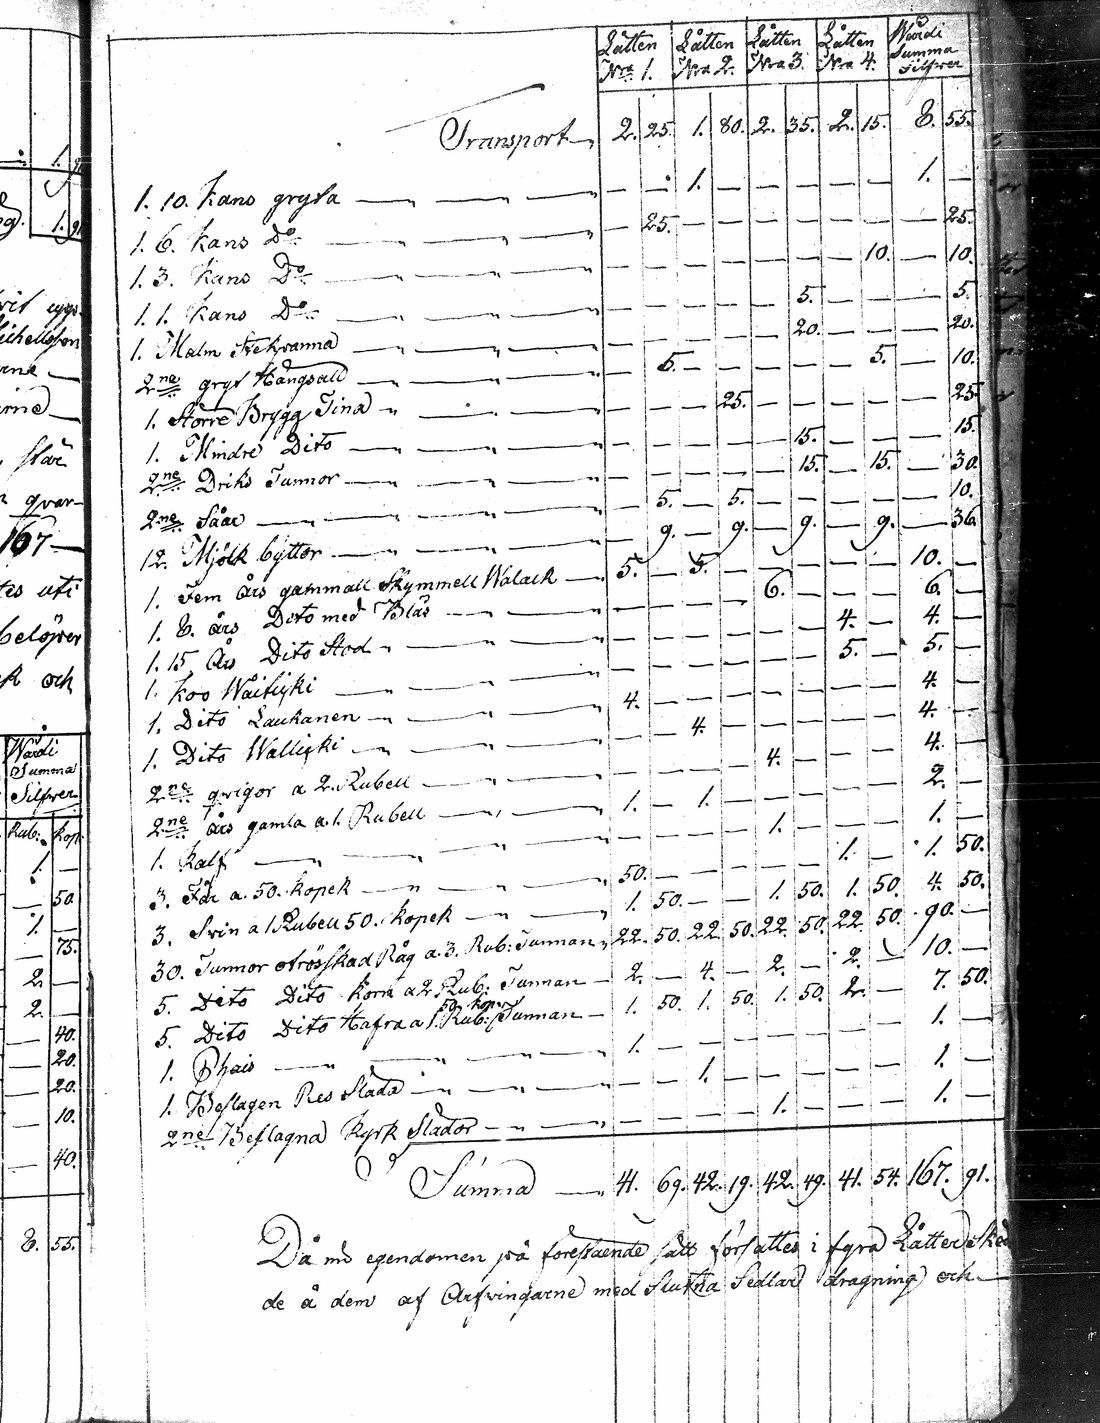 1.
1.
Låtten Låtten Låtten Låtten Wärdi
Nra 1. Nra 2. Nra 3. Nra 4. Summa
Silfver
Transport 2. 25. 1. 80. 2. 35. 2. 15. 8. 55.
1. 10. kans gryta — „ — „ — — 1. — — — — — 1. —
1. 6. kans Do — „ — „ — 25. — — — — — — — 25.
1. 3. kans Do — „ — „ — — — — — — — 10. — 10.
1. 1. kans Do — „ — „ — — — — — 5. — — — 5.
1. Malm — „ — „ — — — — — 20. — — — 20.
2ne gryt Hängsall — „ — „ — 5. — — — — — 5. — 10.
1. Större Brygg Tina — „ — „ — — — 25. — — — — — 25.
1. Mindre Dito — „ — „ — — — — — 15. — — — 15.
2ne Driks Tunnor — „ — „ — — — — — 15. — 15. — 30.
2ne Såar — „ — „ — 5. — 5. — — — — — 10.
12. Mjölk byttor — „ — „ — 9. — 9. — 9. — 9. — 36.
1. Fem års gammall Skymmell Walack — 5. — 5. — — — — — 10. —
1. 8. års Dito med Bläs — „ — — — — 6. — — — 6. —
1. 15 Års Dito Stod — „ — „ — — — — — — 4. — 4. —
1. koo — „ — „ — — — — — — 5. — 5. —
1. Dito Laukanen — „ — „ 4. — — — — — — — 4. —
1. Dito — „ — „ — — 4. — — — — — 4. —
2ne qvigor a 2. Rubell — „ — — — — 4. — — — 4. —
2ne års gamla a 1. Rubell — „ 1. — 1. — — — — — 2. —
1. kalf — „ — „ — — — — 1. — — — 1. —
3. Får a. 50. kopek — „ — „ 50. — — — — — 1. — 1. 50.
3. Svin a 1. Rubell 50. kopek — „ 1. 50. — — 1. 50. 1. 50. 4. 50.
30. Tunnor otrösskad Råg a. 3. Rub: Tunnan 22. 50. 22. 50. 22. 50. 22. 50. 90. —
5. Dito Dito korn a 2 Rub: Tunnan — 2. — 4. — 2. — 2. — 10. —
50. kop:
5. Dito Dito Hafra a 1. Rub: Tunnan — 1. 50. 1. 50. 1. 50. 2. — 7. 50.
1. — „ — „ 1. — — — — — — — 1. —
1. Beslagen Res Släda — „ — „ — — 1. — — — — — 1. —
2ne Beslagna kyrk Slädor — „ — „ — — — — 1. — — — 1. —
Summa — 41. 69. 42. 19. 42. 49. 41. 54. 167. 91.
Då nu egendomen på förestående sätt författes i fyra Låtter sked
de å dem af Arfvingarne med Slutna Sedlar dragning och
qvar-
167 —
uti
belöper
och
Wärdi
Summa
Silfver
Rub: kop:
1. —
— 50.
1. —
— 75.
2. —
2. —
— 40.
— 20.
— 20.
— 10.
— 40.
8. 55.